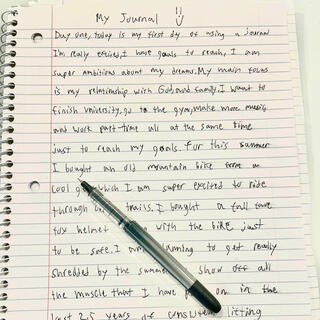 My Journal
Day one, today is my first day of using a journal
I'm really excited, I have goals to reach, I am
super ambitious about my dreams. My main focus
is my relationship with God and family. I want to
finish university, go to the gym, make more music
and work part time all at the same time
just to reach my goals. For this summer
I bought an old mountain bike from a
cool guy which I am super excited to ride
through trails. I bought a full face
fox helmet with the bike just
to be safe. I planning to get really
shredded by the summer show off all
the muscle that I have on in the
last 2.5 years of consistent lifting